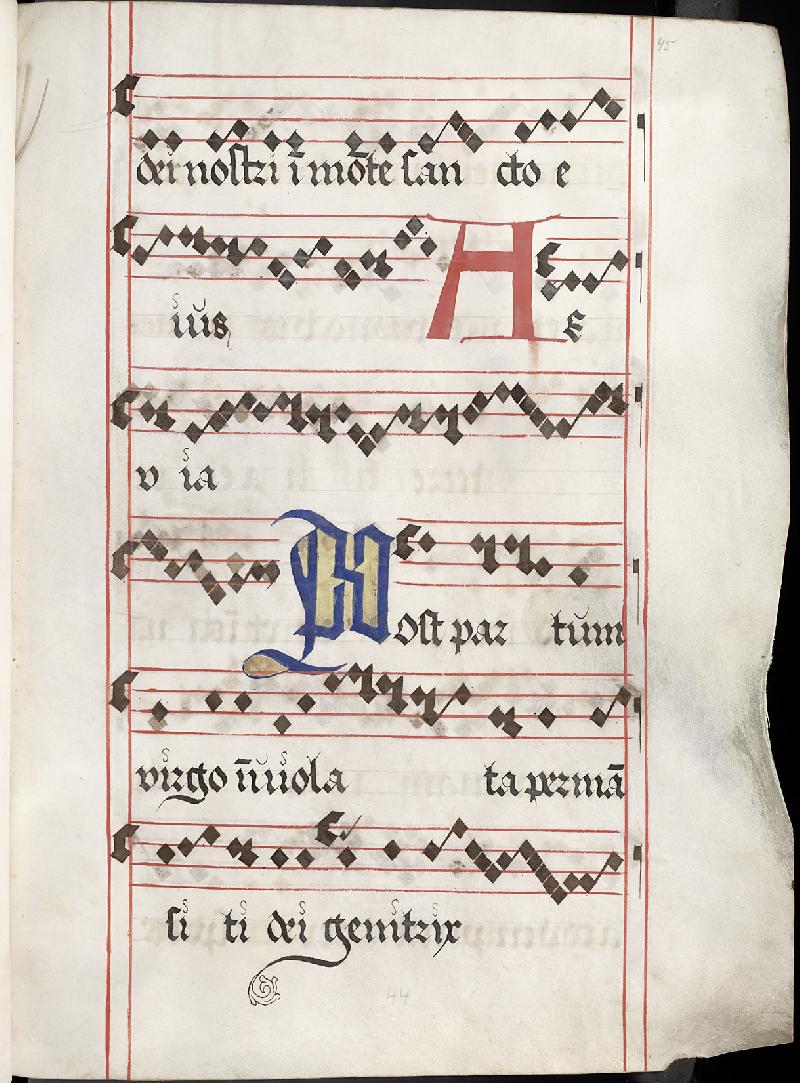 45
dei nostri ī mōte san cto e
ius A E
v ia
Post par tum
virgo īuiola ta permā
si ti dei genitrix
44